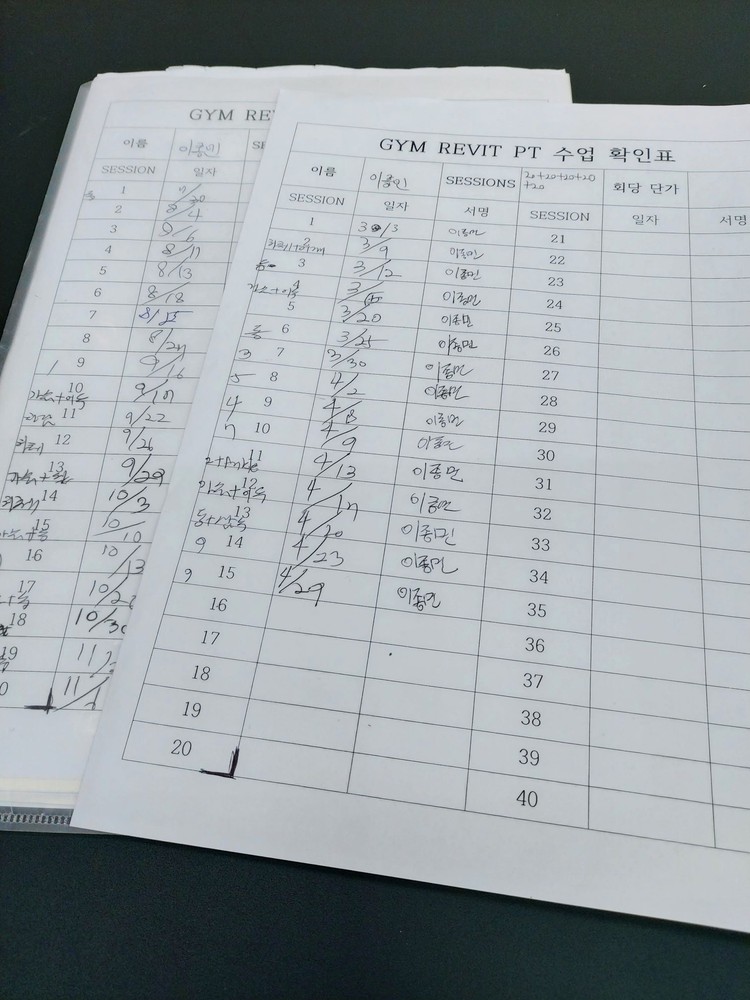 GYM RE
이름 이종민 SE
SESSION 일자
1 7/30
2 8/4
3 8/6
4 8/11
5 8/13
6 8/18
7 8/25
8 8/27
9 9/16
10 9/17
11 9/22
12 9/26
13 9/29
14 10/3
15 10/10
16 10/13
17
18 10/30
19
GYM REVIT PT 수업 확인표
이름 이종민 SESSIONS 20+20+20+20+20 회당 단가
SESSION 일자 서명 SESSION 일자 서명
1 3/3 이종민 21
2 3/9 이종민 22
3 3/12 이종민 23
4 이종민 24
5 3/20 이종민 25
6 3/25 이종민 26
3 7 3/30 이종민 27
5 8 4/2 이종민 28
4 9 4/8 이종민 29
7 10 4/9 이종민 30
11 4/13 이종민 31
12 4/17 이종민 32
13 4/20 이종민 33
9 14 4/23 이종민 34
9 15 4/29 이종민 35
16 36
17 37
18 38
19 39
20 40